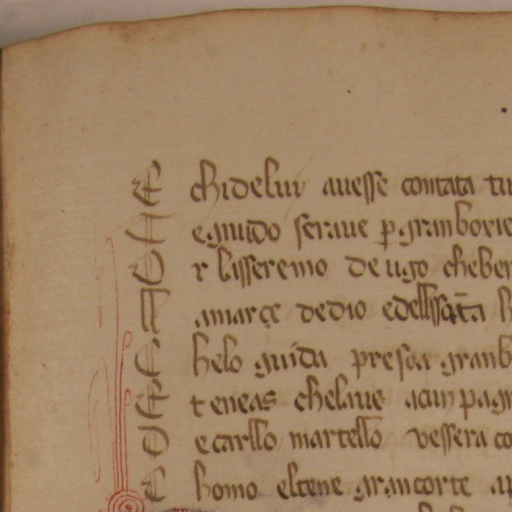 E chi de lui auesse contata tu
A e guido seraue p gran boxie
O r lisseremo de ugo che ber
A amarçe de dio e dell
C helo guida presoa gran b
E t eneas chelaue acunpag
D e carllo martello uessera co
C homo el tene gran corte ap